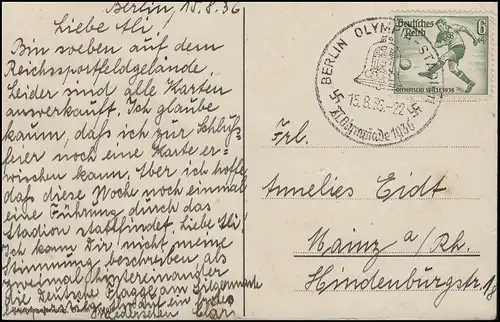 Berlin, 15.8.36
Liebe Ali!
Bin soeben auf dem
Reichssportfeldgelände.
Leider sind alle Karten
ausverkauft. Ich glaube
kaum, daß ich zur Schluß-
feier noch eine Karte er-
wischen kann. Aber ich hoffe,
daß diese Woche noch einmal
eine Führung durch das
Stadion stattfindet. Liebe Ali,
Ich kann Dir nicht meine
Stimmung beschreiben, als
zweimal hintereinander
die Deutsche Flagge am Siegermaste
Wiedersehen
BERLIN OLYMPIA-STADION
15.8.36.-22
XI. Olympiade 1936
Deutsches Reich
6
OLYMPISCHE SPIELE 1936
Frl.
Annelies Eidt
Mainz a/Rh.
Hindenburgstr. 18